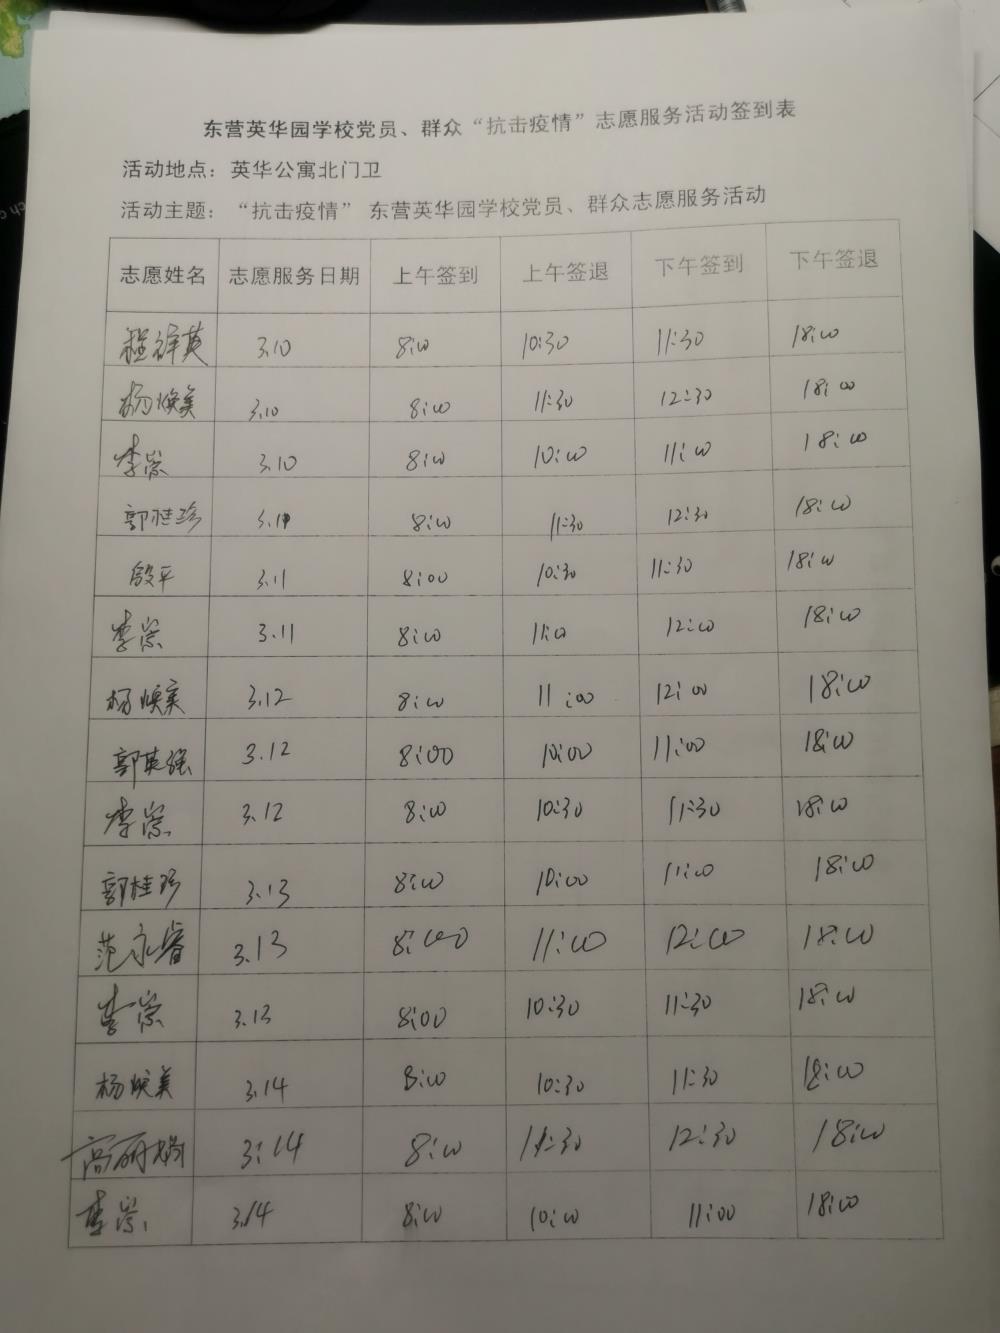 东营英华园学校党员、群众“抗击疫情”志愿服务活动签到表
活动地点：英华公寓北门卫
活动主题：“抗击疫情” 东营英华园学校党员、群众志愿服务活动
志愿姓名 志愿服务日期 上午签到 上午签退 下午签到 下午签退
程祥英 3.10 8:00 10:30 11:30 18:00
杨焕美 3.10 8:00 11:30 12:30 18:00
李崇 3.10 8:00 10:00 11:00 18:00
郭桂珍 3.11 8:00 11:30 12:30 18:00
殷平 3.11 8:00 10:30 11:30 18:00
李崇 3.11 8:00 11:00 12:00 18:00
杨焕美 3.12 8:00 11:00 12:00 18:00
郭英强 3.12 8:00 10:00 11:00 18:00
李崇 3.12 8:00 10:30 11:30 18:00
郭桂珍 3.13 8:00 10:00 11:00 18:00
范永睿 3.13 8:00 11:00 12:00 18:00
李崇 3.13 8:00 10:30 11:30 18:00
杨焕美 3.14 8:00 10:30 11:30 18:00
高丽娟 3:14 8:00 11:30 12:30 18:00
李崇 3.14 8:00 10:00 11:00 18:00